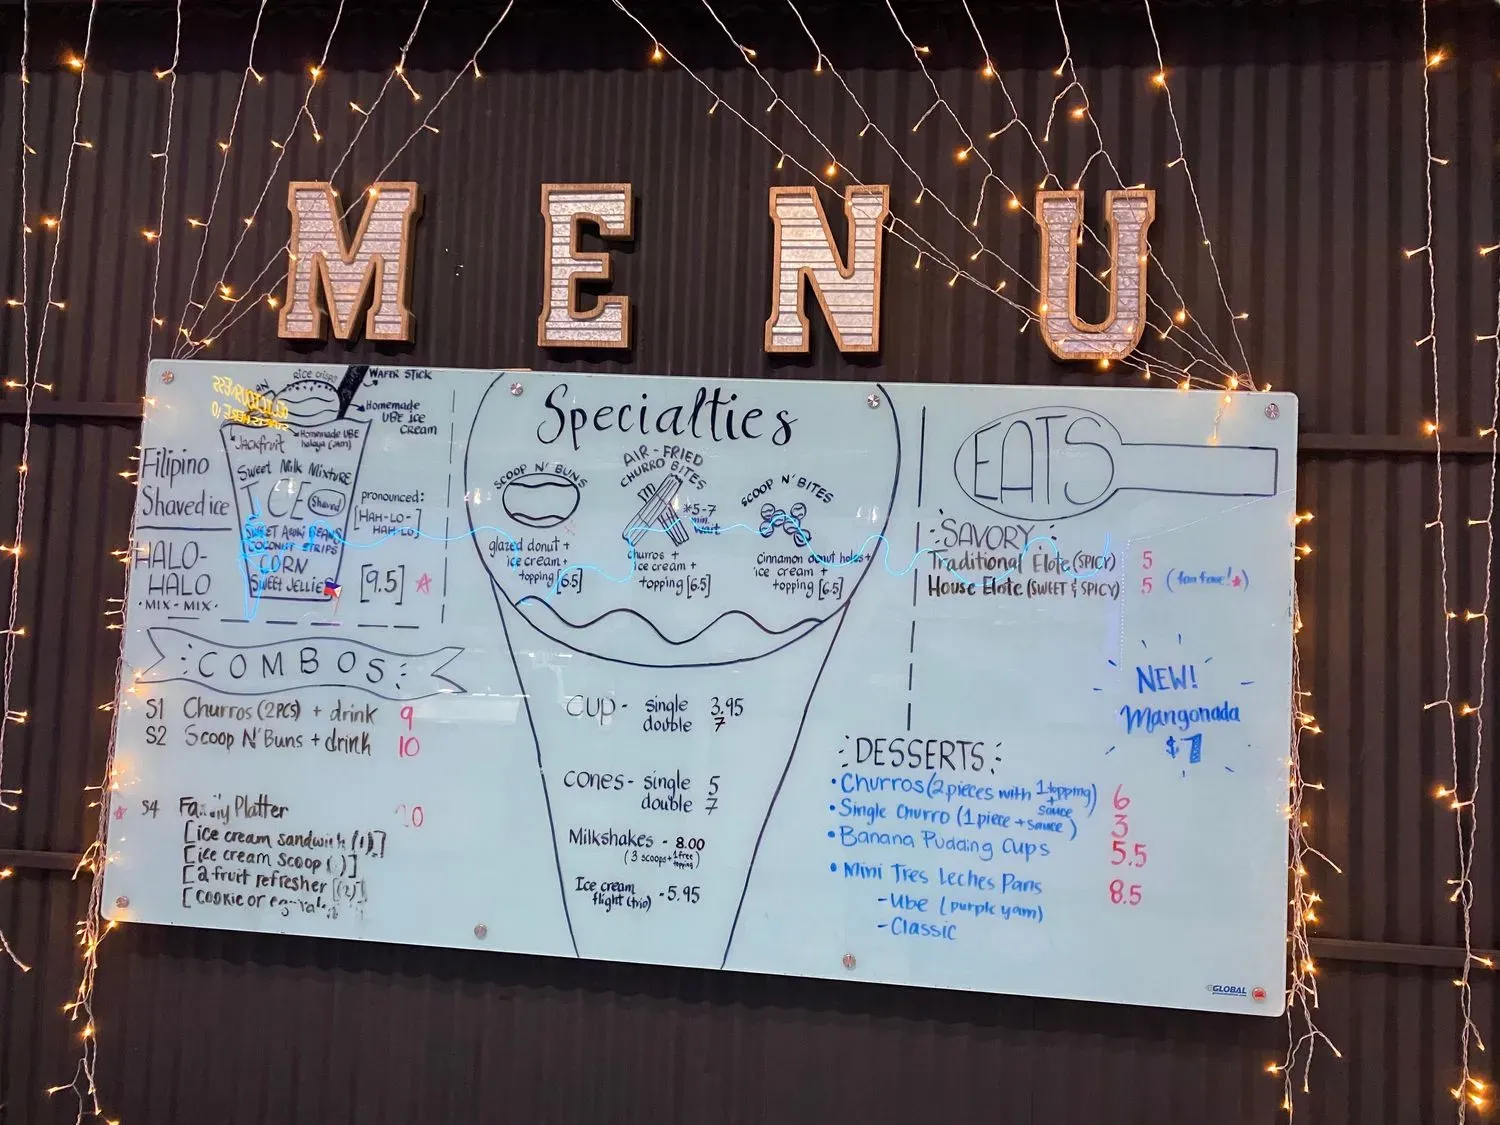 MENU
RICE CRISPS
WAFER STICK
Homemade
UBE ice
cream
Jackfruit
Homemade UBE
halaya (jam)
Filipino
Shaved ice
Sweet Milk Mixture
ICE (Shaved)
pronounced:
[HAH-LO-
HAH-LO]
SWEET Azuki BEANS
COCONUT STRIPS
CORN
SWEET JELLIES
HALO-
HALO
·MIX-MIX·
[9.5]
COMBOS
S1 Churros (2PCS) + drink 9
S2 Scoop N' Buns + drink 10
S4 Platter
[ice cream sandwich (1)]
[ice cream scoop
[2 fruit refresher
[cookie or
Specialties
SCOOP N' BUNS
glazed donut +
ice cream +
topping [6.5]
AIR-FRIED
CHURRO BITES
*5-7
min.
wait
churros +
ice cream +
topping [6.5]
SCOOP N' BITES
Cinnamon donut holes +
ice cream +
topping [6.5]
CUP - single 3.95
double 7
CONES - single 5
double 7
Milkshakes - 8.00
(3 scoops + 1 free
topping)
Ice cream
flight (trio) - 5.95
EATS
SAVORY
Traditional Elote (SPICY) 5
House Elote (SWEET & SPICY) 5 (fan fave!)
NEW!
Mangonada
$7
DESSERTS
• Churros (2 pieces with 1 topping + sauce) 6
• Single Churro (1 piece + sauce) 3
• Banana Pudding Cups 5.5
• Mini Tres Leches Pans 8.5
- Ube (purple yam)
- Classic
GLOBAL